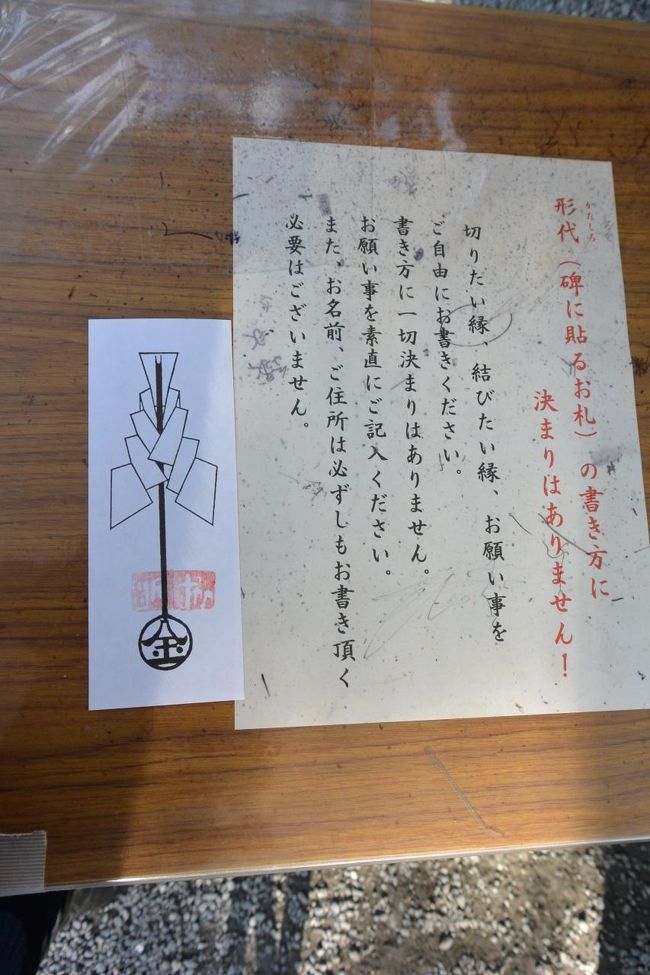 かたしろ
形代（碑に貼るお札）の書き方に
決まりはありません！
切りたい縁、結びたい縁、お願い事を
ご自由にお書きください。
書き方に一切決まりはありません。
お願い事を素直にご記入ください。
また、お名前、ご住所は必ずしもお書き頂く
必要はございません。
金